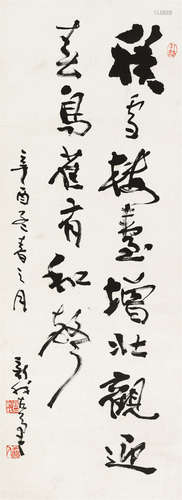 积雪楼台增壮观迎
春鸟雀有和声
辛酉孟春之月